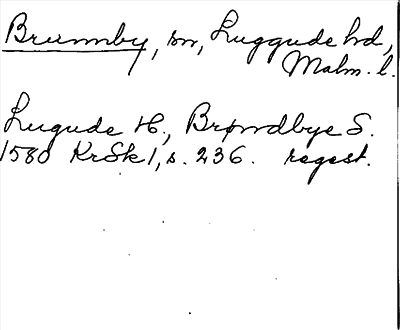 Brunnby, sn, Luggude hd,
Malm. l.
Lugude H., Brøndbye S.
1580 KrSk 1, s. 236. regest.